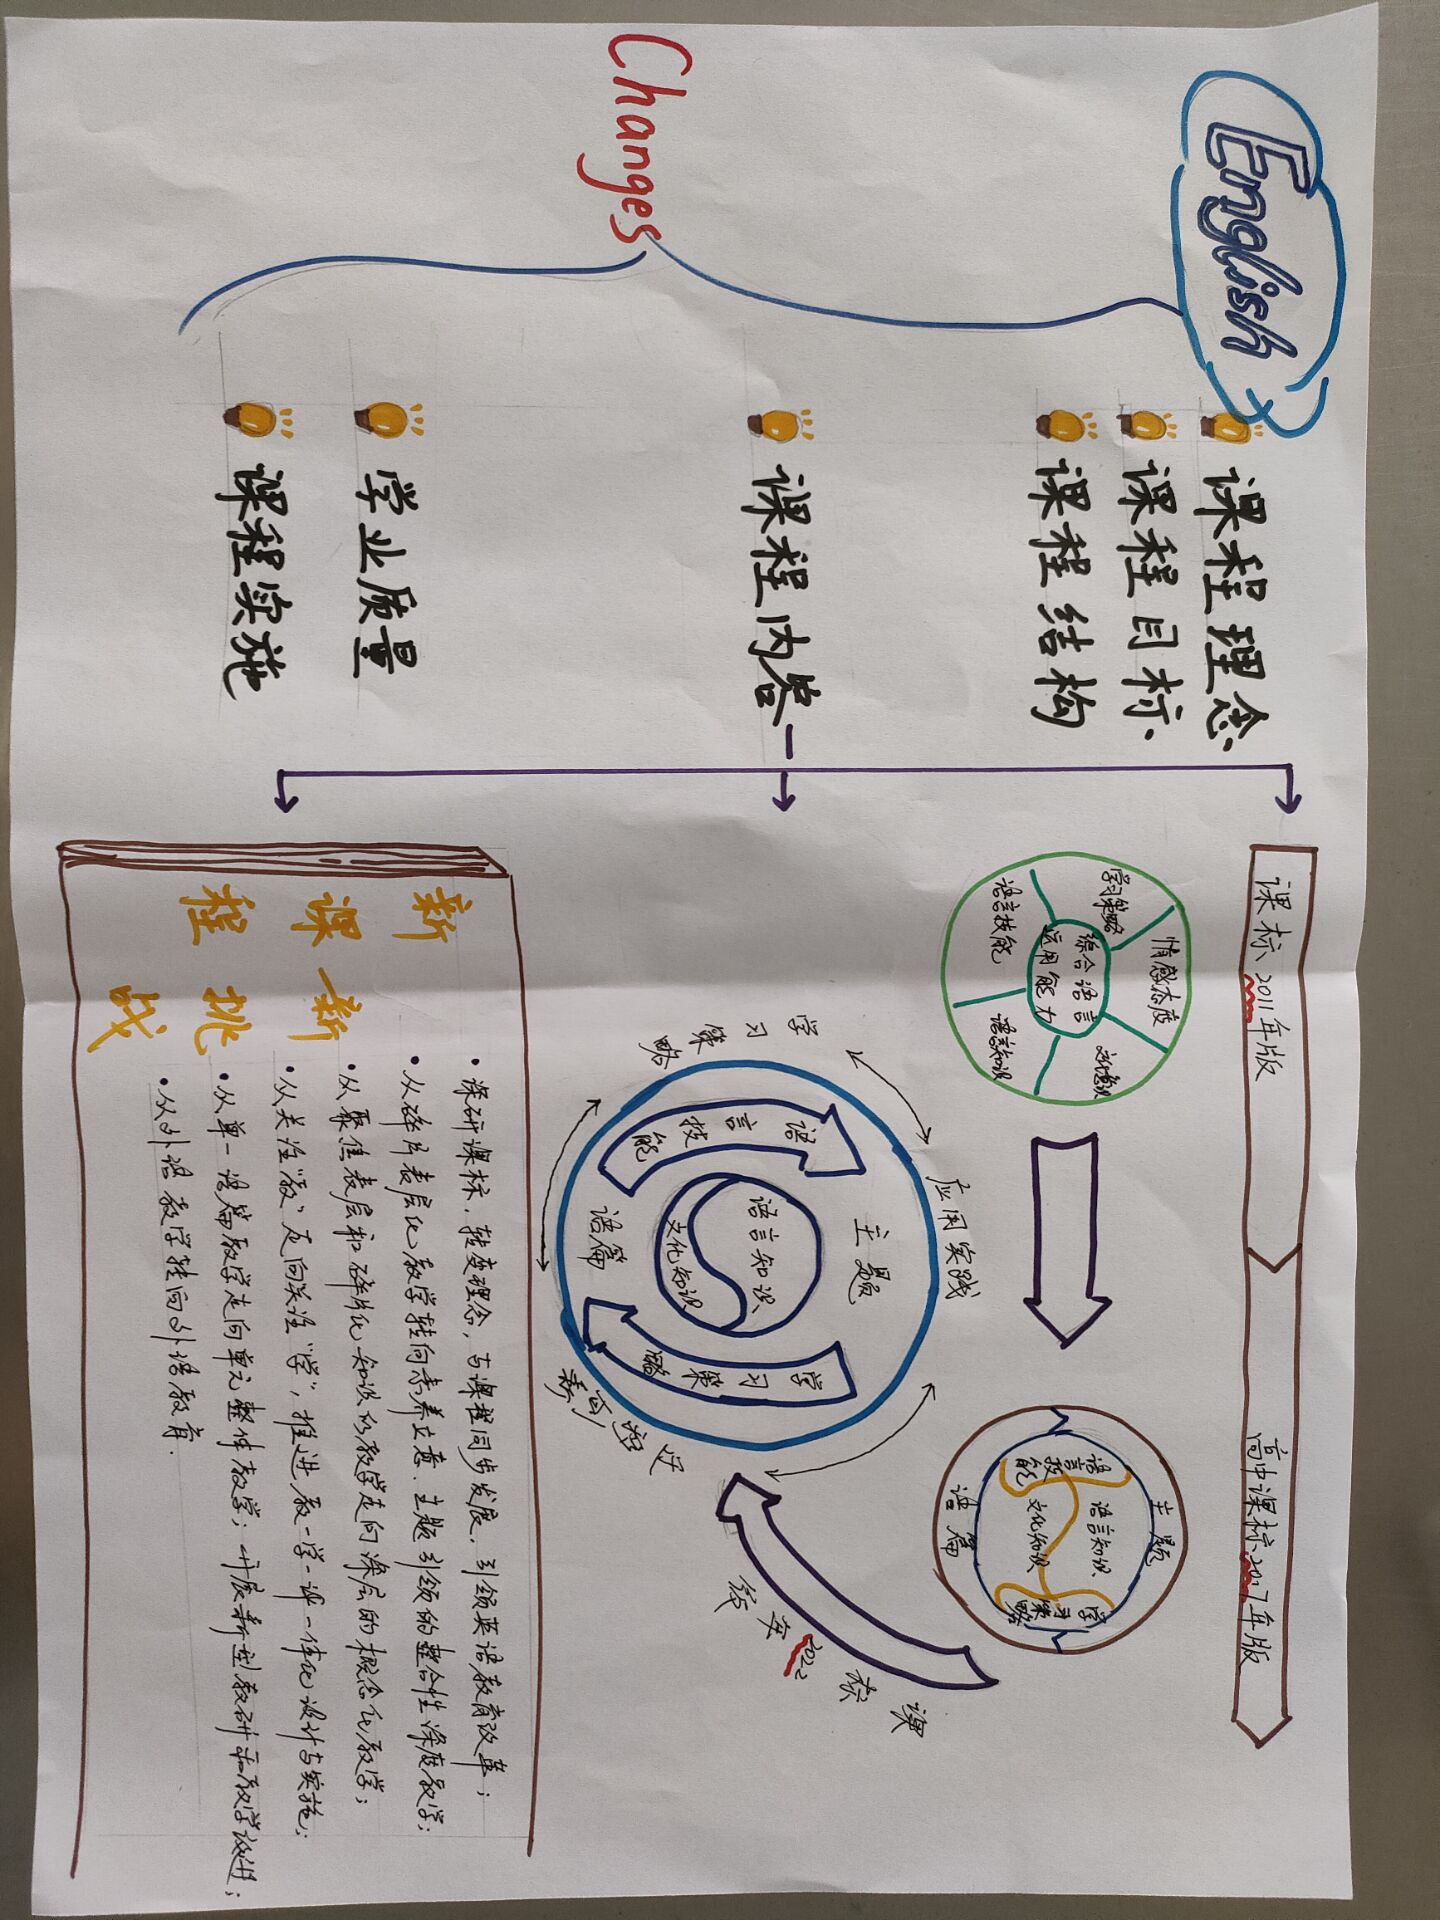 English
Changes
课程理念
课程目标
课程结构
课程内容
学业质量
课程实施
课标2011年版
高中课标2017年版
情感态度
学习策略
文化意识
综合语言
运用能力
语言技能
语言知识
主题
语言技能
语言知识
文化知识
学习策略
语篇
课标2022年版
学习策略
应用实践
迁移创新
主题
语言技能
语言知识
文化知识
学习策略
语篇
新课程
新挑战
·深研课标,转变理念,与课程同步发展,引领英语教育改革;
·从碎片表层化教学转向素养立意、主题引领的整合性深度教学;
·从聚焦表层和碎片化知识的教学走向深层的概念化教学;
·从关注“教”走向关注“学”,推进教-学-评一体化设计与实施;
·从单一语篇教学走向单元整体教学;开展新型教研和教学改进;
·从外语教学转向外语教育.